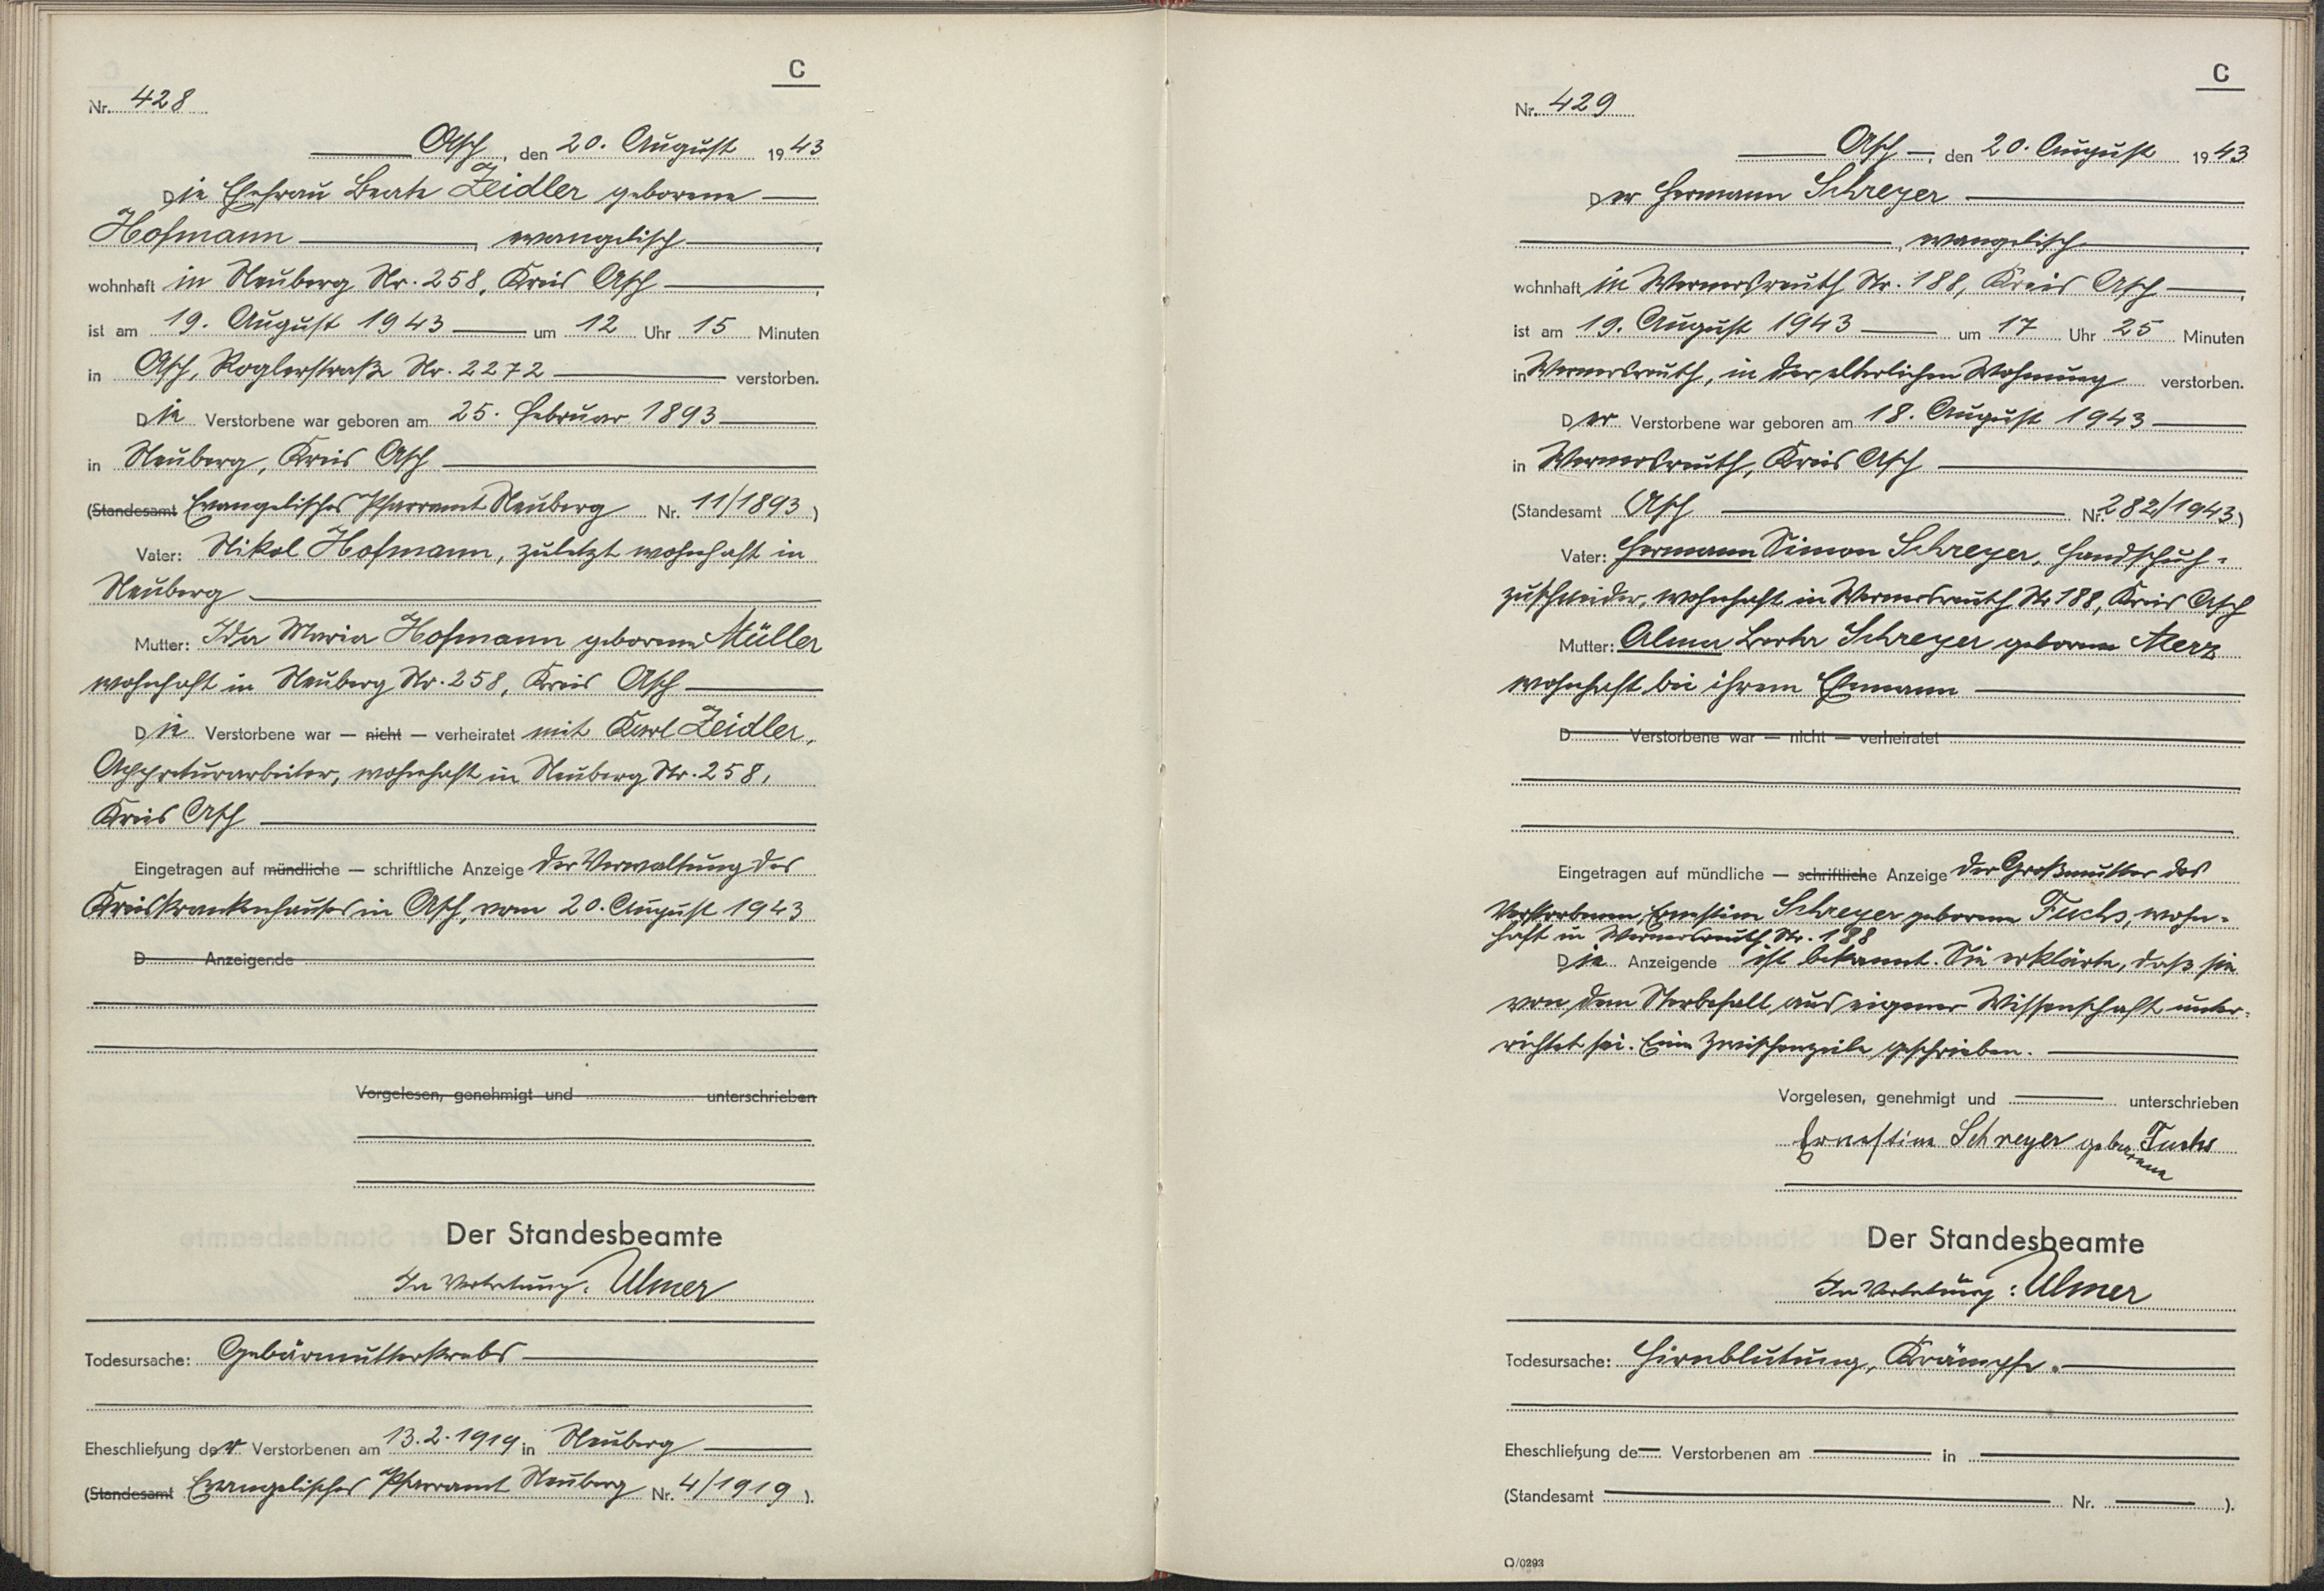 C
Nr. 428
Asch, den 20. August 1943
Die Ehefrau Berta Zeidler geborene
Hofmann, evangelisch,
wohnhaft in Neuberg Nr. 258, Kreis Asch,
ist am 19. August 1943 um 12 Uhr 15 Minuten
in Asch, Roglerstraße Nr. 2272 verstorben.
Die Verstorbene war geboren am 25. Februar 1893
in Neuberg, Kreis Asch
(Standesamt Evangelisches Pfarramt Neuberg Nr. 11/1893)
Vater: Nikol Hofmann, zuletzt wohnhaft in
Neuberg
Mutter: Ida Maria Hofmann geborene Müller
wohnhaft in Neuberg Nr. 258, Kreis Asch
Die Verstorbene war — nicht — verheiratet mit Karl Zeidler,
Appreturarbeiter, wohnhaft in Neuberg Nr. 258,
Kreis Asch
Eingetragen auf mündliche — schriftliche Anzeige der Verwaltung des
Kreiskrankenhauses in Asch, vom 20. August 1943
D Anzeigende
Vorgelesen, genehmigt und unterschrieben
Der Standesbeamte
In Vertretung: Ulmer
Todesursache: Gebärmutterkrebs
Eheschließung der Verstorbenen am 13.2.1919 in Neuberg
(Standesamt Evangelisches Pfarramt Neuberg Nr. 4/1919).
C
Nr. 429
Asch, den 20. August 1943
Der Hermann Schreyer
, evangelisch,
wohnhaft in Wernersreuth Nr. 188, Kreis Asch,
ist am 19. August 1943 um 17 Uhr 25 Minuten
in Wernersreuth, in der elterlichen Wohnung verstorben.
Der Verstorbene war geboren am 18. August 1943
in Wernersreuth, Kreis Asch
(Standesamt Asch Nr. 282/1943)
Vater: Hermann Simon Schreyer, Handschuh-
zuschneider, wohnhaft in Wernersreuth Nr 188, Kreis Asch
Mutter: Alma Berta Schreyer geborene Merz
wohnhaft bei ihrem Ehmann
D Verstorbene war — nicht — verheiratet
Eingetragen auf mündliche — schriftliche Anzeige der Großmutter des
Verstorbenen, Ernestine Schreyer geborene Fuchs, wohn-
haft in Wernersreuth Nr. 188
Die Anzeigende ist bekannt. Sie erklärte, daß sie
von dem Sterbefall aus eigener Wissenschaft unter-
richtet sei. Eine Zwischenzeile geschrieben.
Vorgelesen, genehmigt und unterschrieben
Ernestine Schreyer geborene Fuchs
Der Standesbeamte
In Vertretung: Ulmer
Todesursache: Hirnblutung, Krämpfe.
Eheschließung de Verstorbenen am in
(Standesamt Nr. ).
O/0293